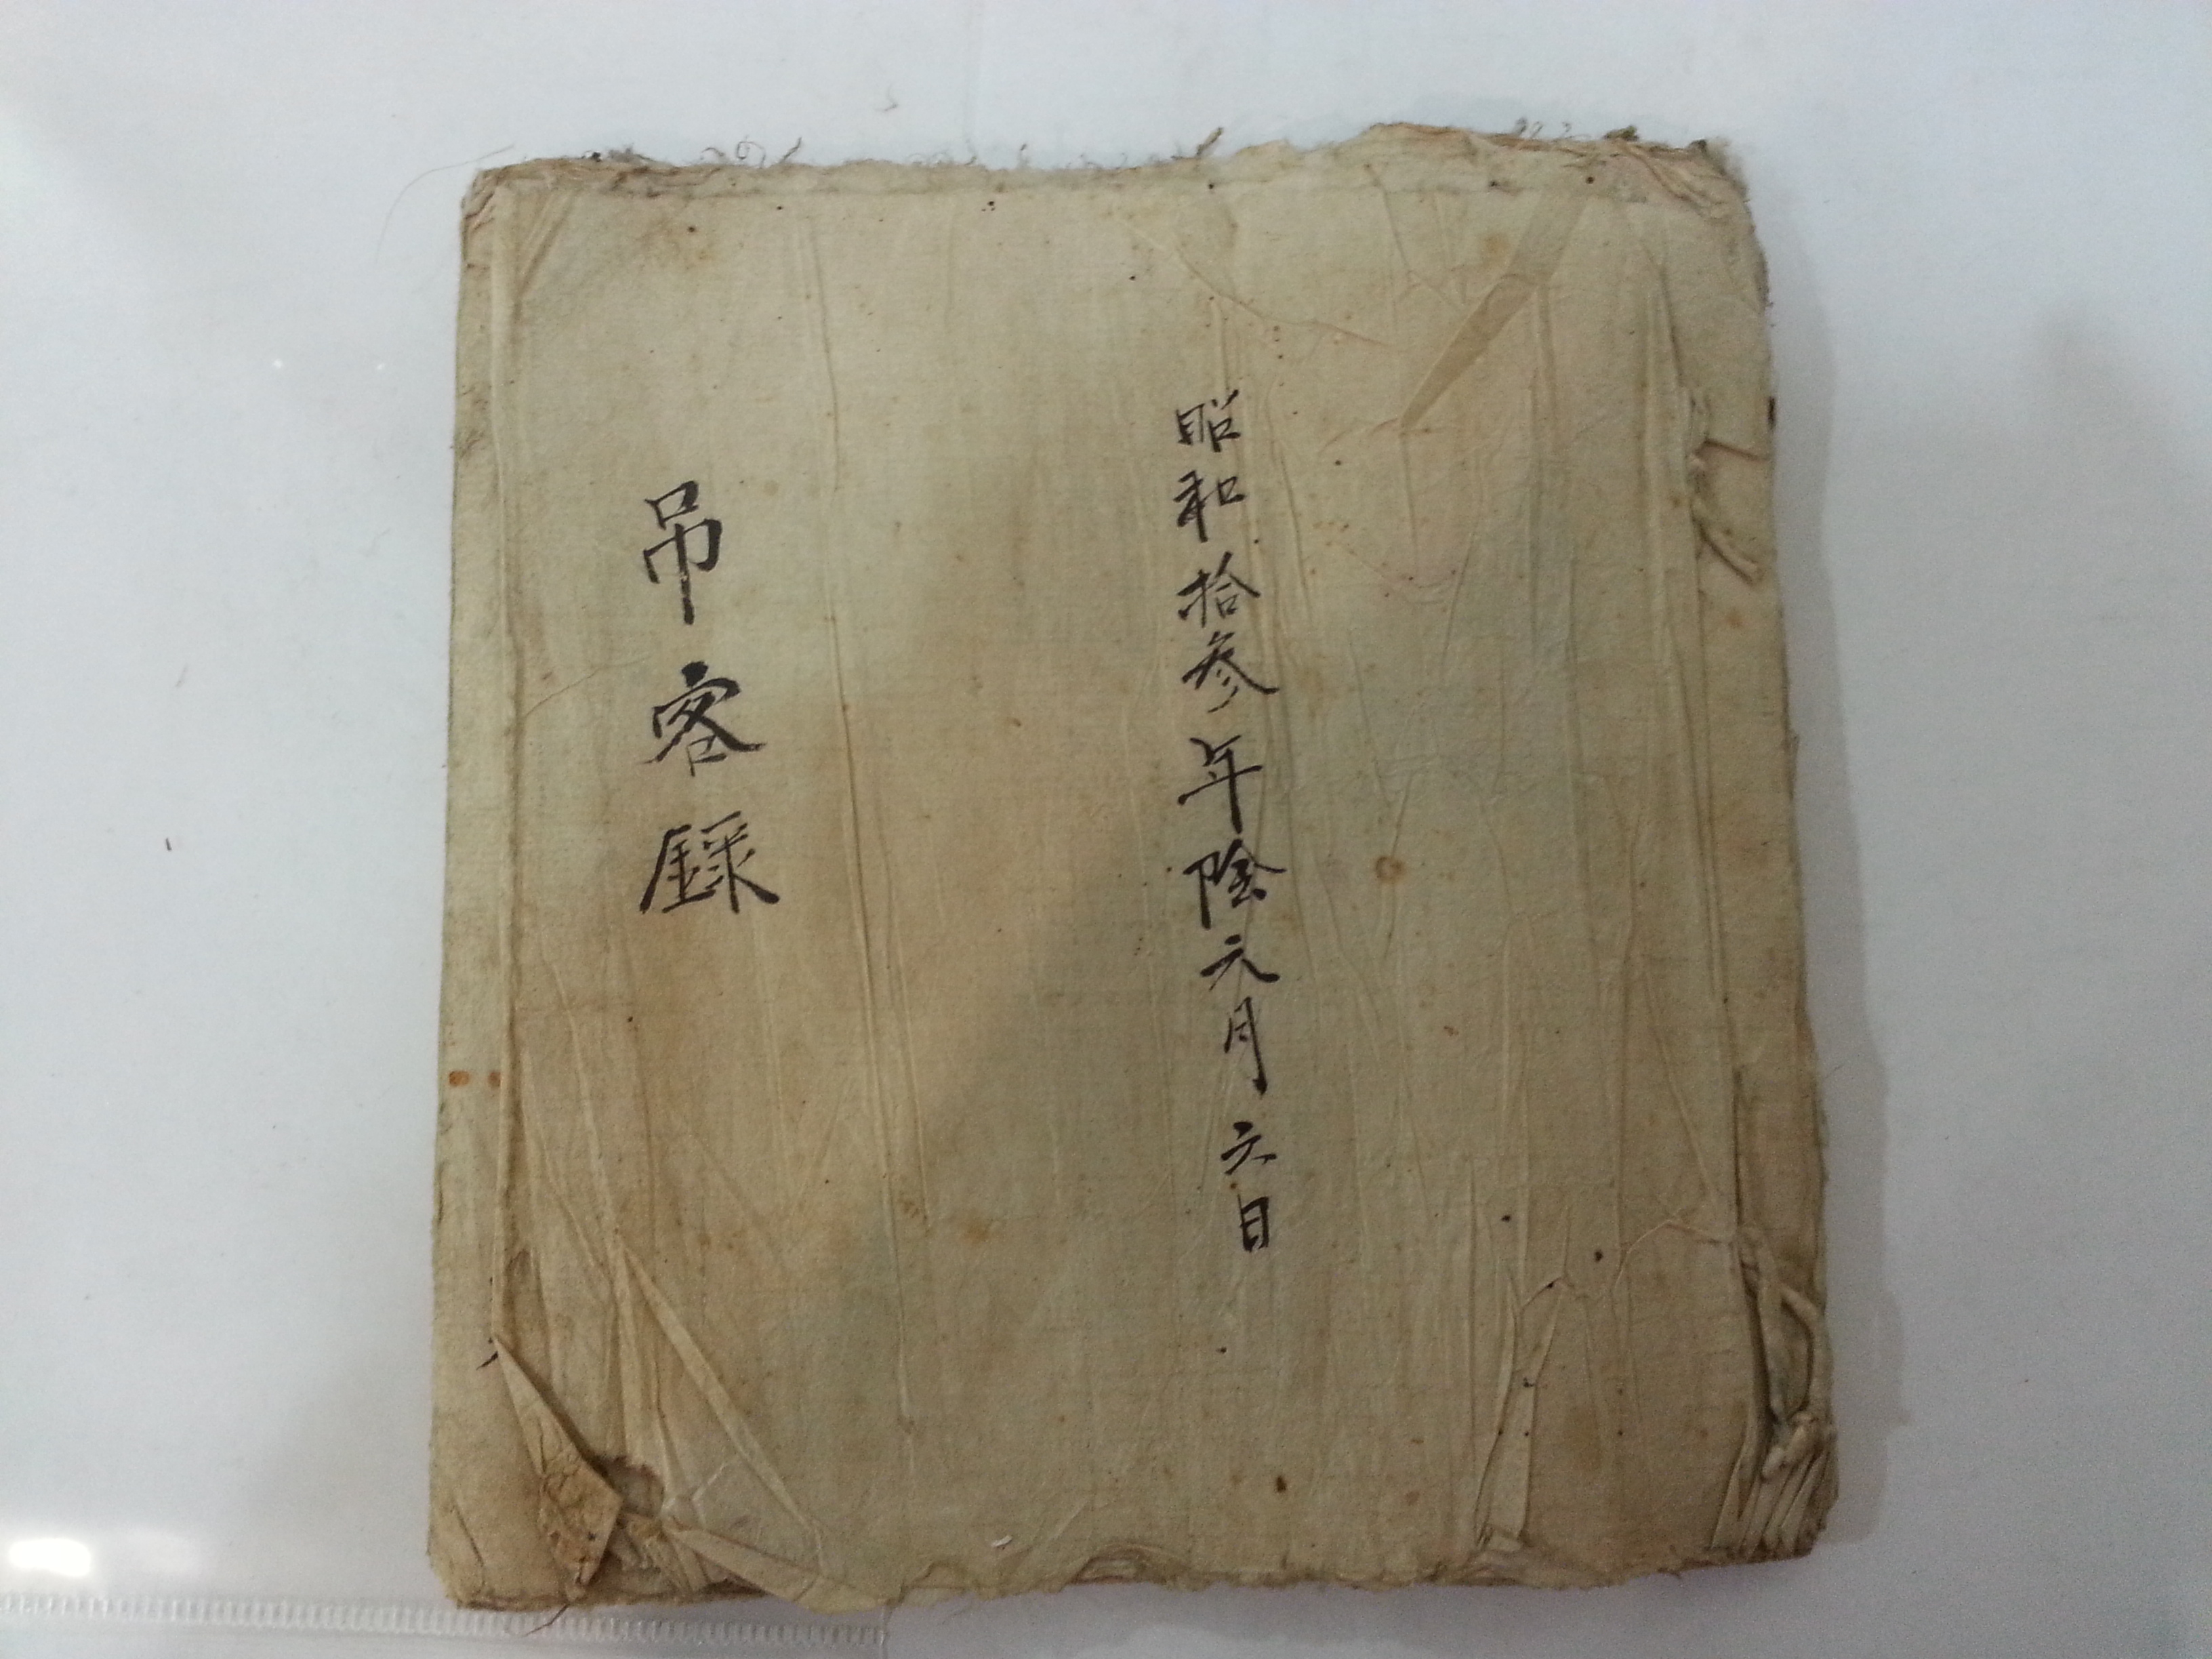 昭和拾參年陰元月六日
吊客錄